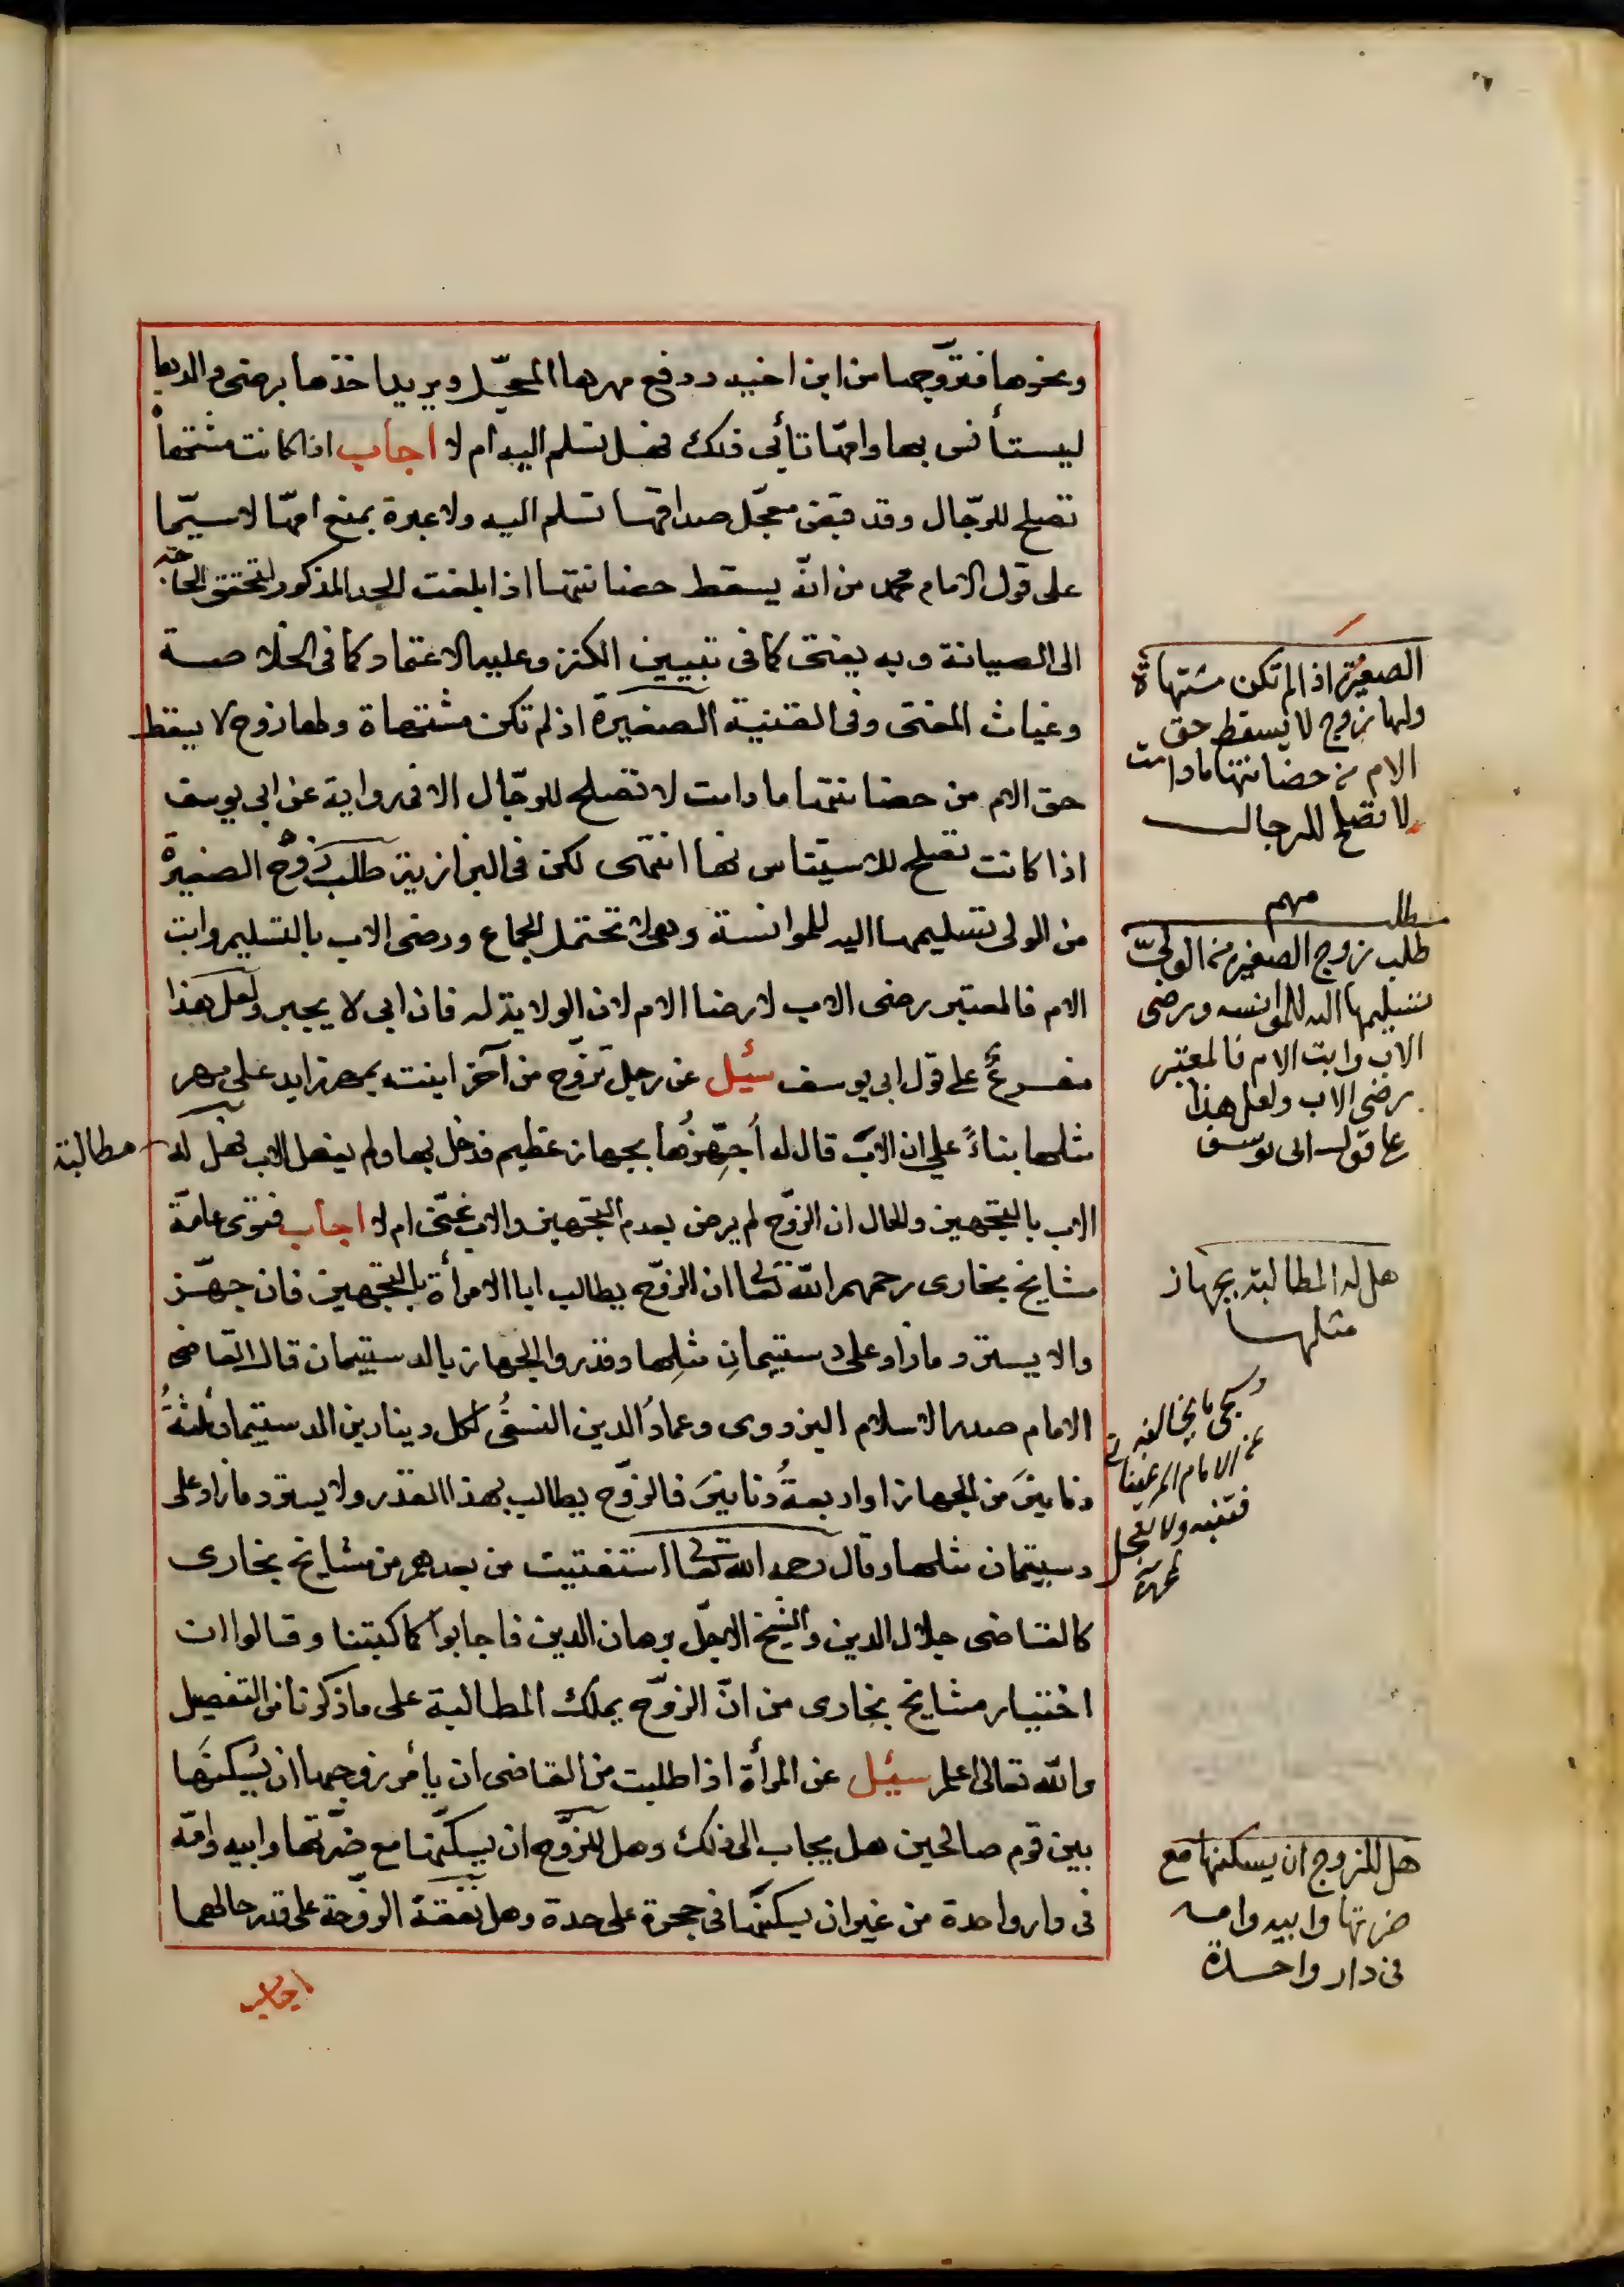 ونحوها فتزوّجها من ابن اخيه ودفع مهرها المعجّل ويريد اخذها برضى والديها
ليستأنس بها وامّها تأبى ذلك فهل تسلم اليه ام لا اجاب اذا كانت مشتهاة
تصلح للرّجال وقد قبض معجّل صداقها تسلم اليه ولا عبرة بمنع امّها لا سيّما
على قول الامام محمد من انّه يسقط حضانتها اذا بلغت الحد المذكور لتحقق الحاجة
الى الصيانة وبه يفتى كما فى تبيين الكنز وعليه الاعتماد كما فى الخلاصة
وغياث المفتى وفى القنية الصغيرة اذ لم تكن مشتهاة ولها زوج لا يسقط
حق الام من حضانتها ما دامت لا تصلح للرّجال الا فى رواية عن ابى يوسف
اذا كانت تصلح للاستيناس بها انتهى لكن فى البزازية طلب زوج الصغيرة
من الولى تسليمها اليه للموانسة وهى لا تحتمل الجماع ورضى الاب بالتسليم وابت
الام فالمعتبر رضى الاب لا رضا الام لان الولاية له فان ابى لا يجبر ولعل هذا
مفرعٌ على قول ابى يوسف سُئِل عن رجل تزوّج من آخر ابنته بمهر زايد على مهر
مثلها بناءً على ان الاب قال له اُجهّزُها بجهاز عظيم فدخل بها ولم يفعل الاب فهل له
مطالبة
الاب بالتجهيز والحال ان الزوّج لم يرض بعدم التجهيز والاب غنّى ام لا اجاب فتوى عامّة
مشايخ بخارى رحمهم الله تعالى ان الزوّج يطالب ابا الامرأة بالتجهيز فان جهّز
والا يسترد ما زاد على دستيمانِ مثلِها وقدروا الجهاز بالدستيمان قال القاضى
الامام صدر الاسلام البزدوى وعمادُ الدين النسفى لكل دينار من الدستيمان ثلثةُ
دنانيرَ من الجهاز او اربعةُ دنانيرَ فالزوّج يطالب بهذا القدر ولا يسترد ما زاد على
دستيمان مثلها وقال رحمه الله تعالى استفتيت من بعدهم من مشايخ بخارى
كالقاضى جلال الدين والشيخ الاجلّ برهان الدين فاجابوا كما كتبنا وقالوا ان
اختيار مشايخ بخارى من انّ الزوّج يملك المطالبة على ما ذكرنا من التفصيل
والله تعالى اعلم سُئِل عن المرأة اذا طلبت من القاضى ان يأمر زوجها ان يُسكنَها
بين قوم صالحين هل يجاب الى ذلك وهل للزوّج ان يسكنها مع ضرّتها وابيه وامّه
فى دار واحدة من غير ان يسكنها فى حجرة على حدة وهل نفقة الزوّجة على قدر حالهما
اجاب
الصغيرة اذا لم تكن مشتهاة
ولها زوج لا يسقط حق
الام من حضانتها ما دامت
لا تصلح للرجال
مطلب مهم
طلب زوج الصغيرة من الولىّ
تسليمها اليه للموانسه ورضى
الاب وابت الام فالمعتبر
رضى الاب ولعل هذا
على قول ابى يوسف
هل له المطالبة بجهاز
مثلها
وسيجى ما يخالفه
عن الامام المرغينانى
فتنبه ولا تعجل
هل للزوج ان يسكنها مع
ضرتها وابيه وامه
فى دار واحدة